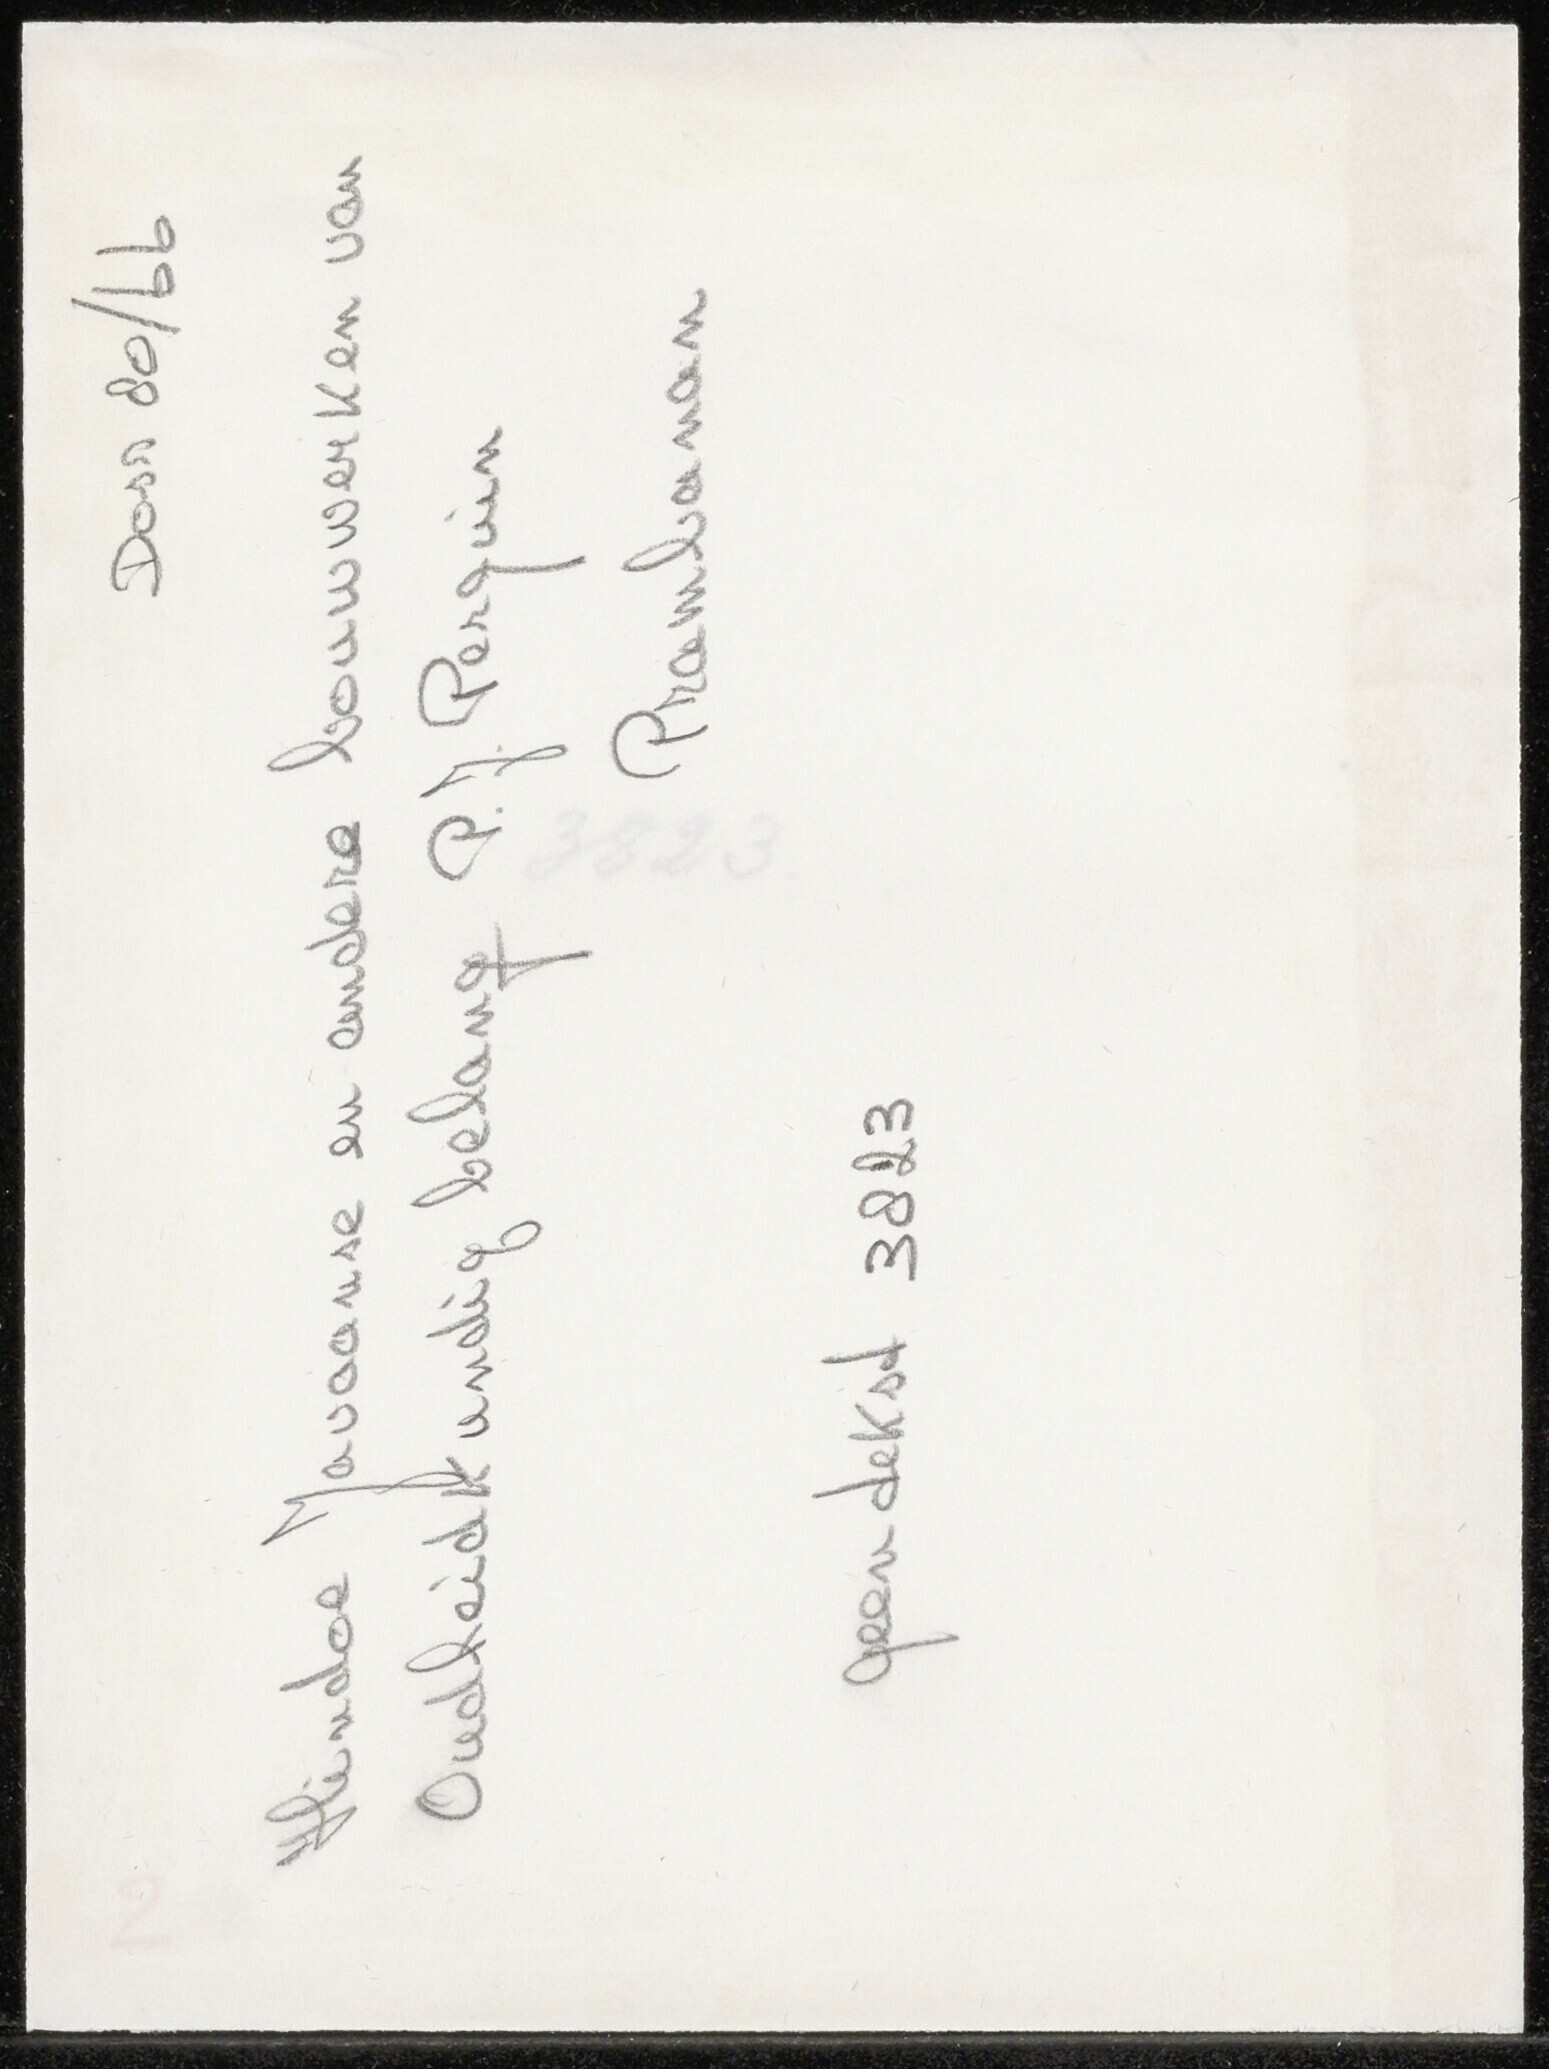 Doss 80/bb
Hindoe Javaanse en andere bouwwerken van
Oudheidkundig belang P.J. Perquin
Prambanan
3823
geen dekst 3823
2